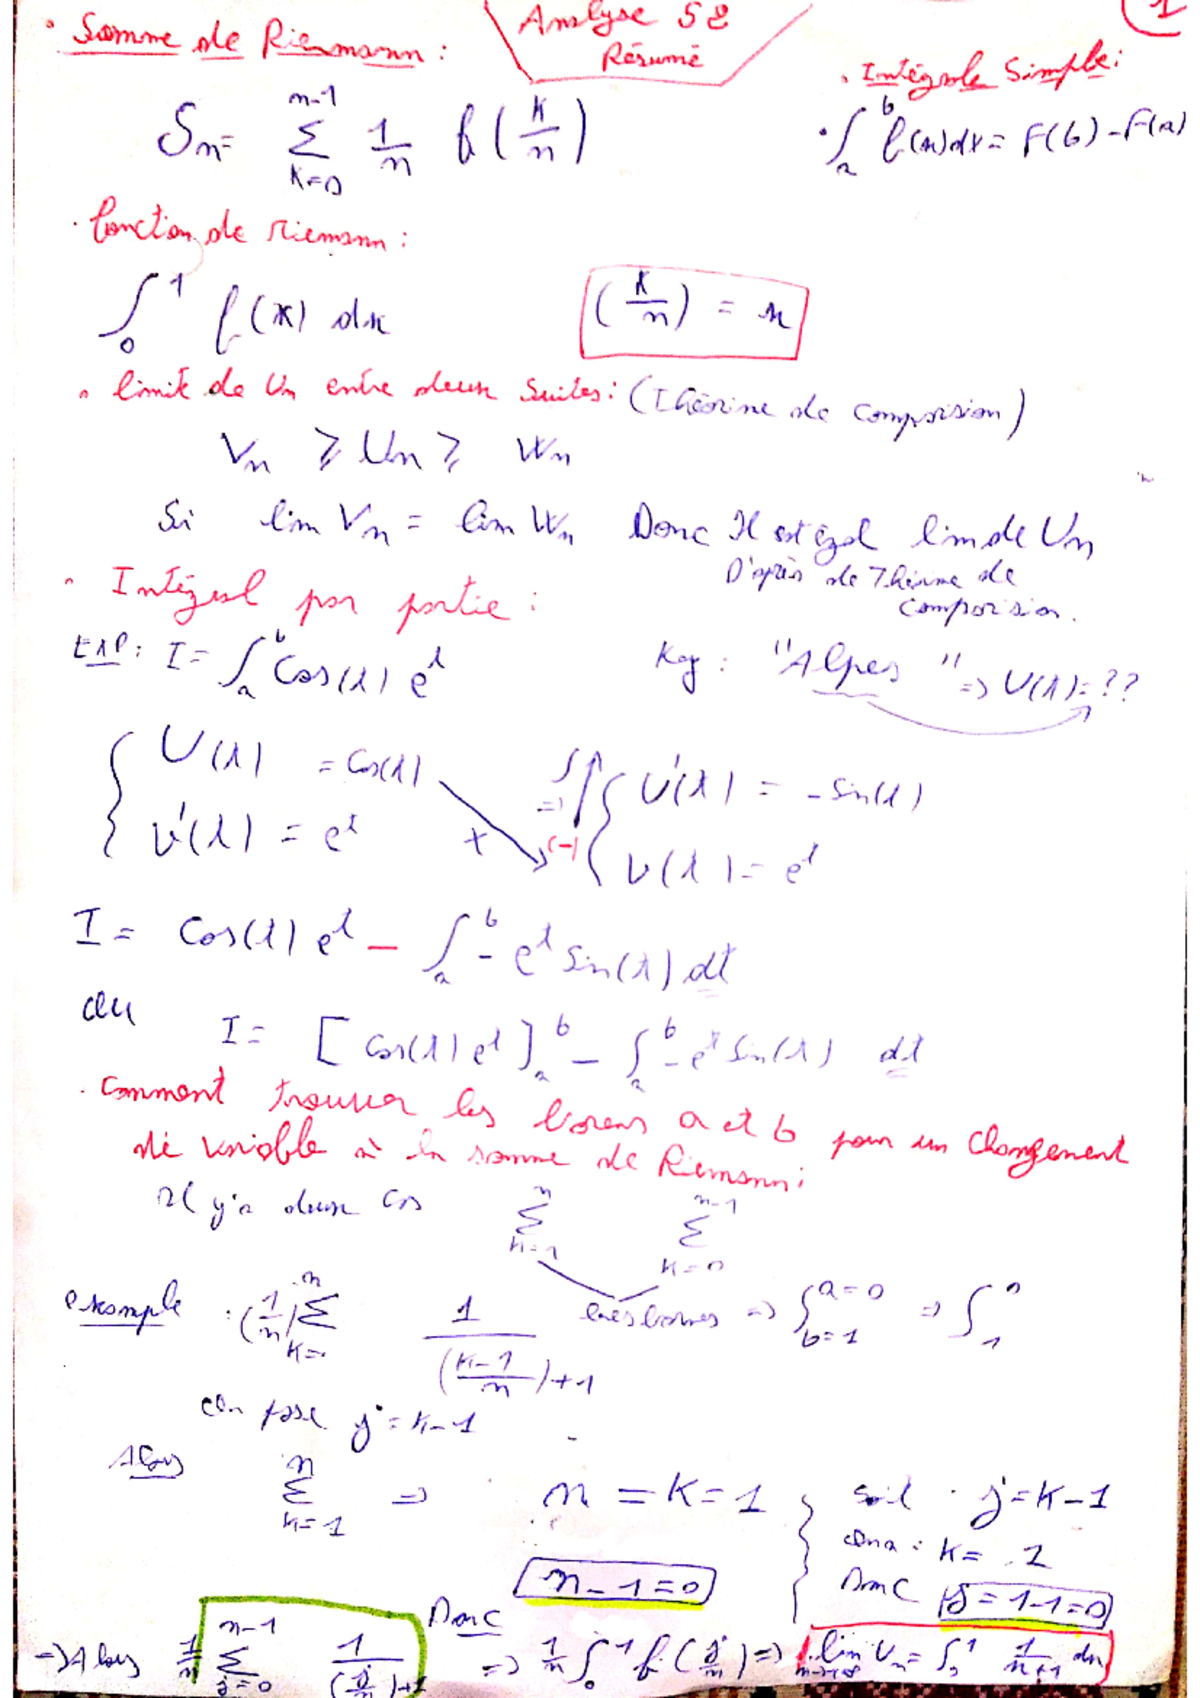 Analyse S2
Résumé
1
• Somme de Riemann :
Sn = Σ_{k=0}^{n-1} 1/n f(k/n)
• Intégrale Simple :
• ∫_a^b f(x)dx = F(b) - F(a)
• fonction de riemann :
∫_0^1 f(x) dx
(k/n) = x
• limite de Un entre deux suites : (Théorime de comparision)
Vn ⩾ Un ⩾ Wn
Si lim Vn = lim Wn Donc Il est égal lim de Un
D'après de Théorime de
comparision.
• Intégral par partie :
EXP : I = ∫_a^b Cos(t) e^t
Key : "Alpes" => U(t) = ??
{ U(t) = Cos(t)
v'(t) = e^t
x
∫ => (-)
{ U'(t) = - Sin(t)
v(t) = e^t
I = Cos(t) e^t - ∫_a^b - e^t Sin(t) dt
ou
I = [Cos(t) e^t]_a^b - ∫_a^b - e^t Sin(t) dt
• Comment trouver les bornes a et b pour un changement
de variable à la somme de Riemann :
Il y'a deux cas Σ_{k=1}^{n} Σ_{k=0}^{n-1}
exemple : (1/n) Σ_{k=1}^{n} 1/((k-1)/n)+1
les bornes => ∫_{b=1}^{a=0} => ∫_1^0
on pose j = k-1
Alors Σ_{k=1}^{n} => n = k = 1
n - 1 = 0
soit j = k-1
on a : k = 1
Donc j = 1-1 = 0
=> Alors 1/n Σ_{j=0}^{n-1} 1/(j/n)+1
Donc => 1/n ∫_0^1 f(j/n) => lim_{n→+∞} Un = ∫_0^1 1/(x+1) dx